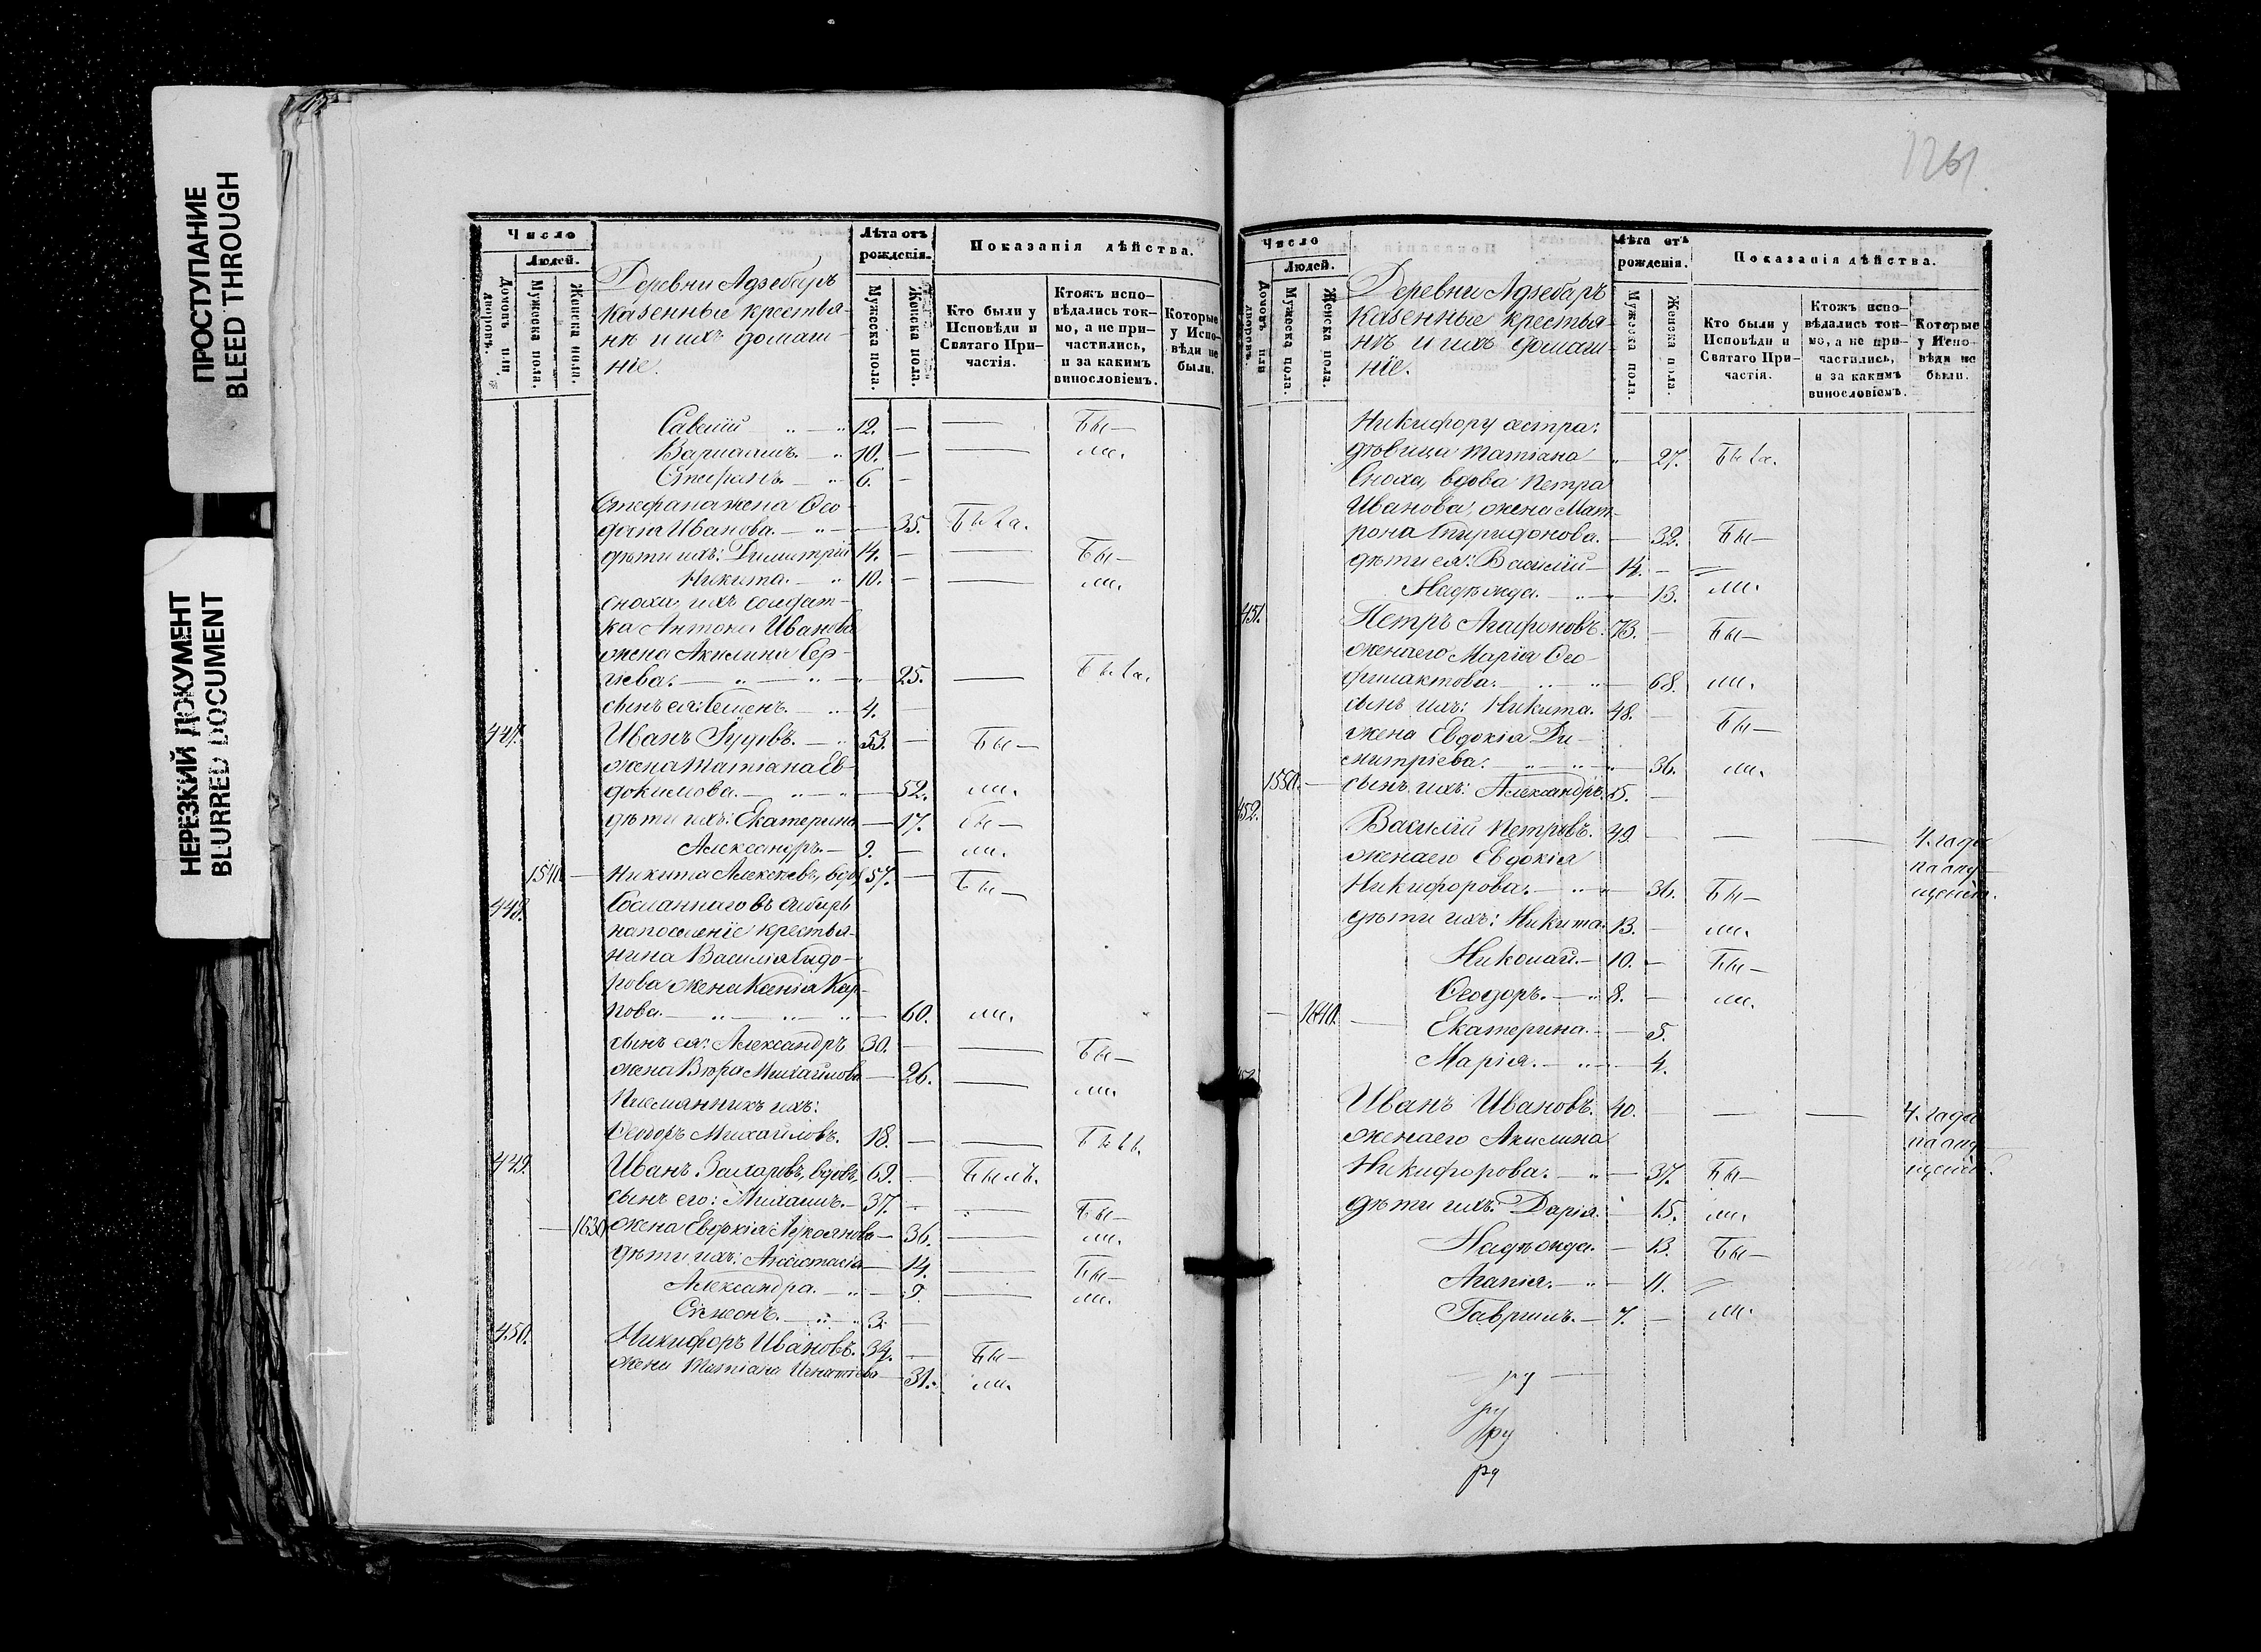 ПРОСТУПАНИЕ
BLEED THROUGH
НЕРЕЗКИЙ ДОКУМЕНТ
BLURRED DOCUMENT
Число
Людей.
Домовъ или дворовъ.
Мужеска пола.
Женска пола.
Деревни Адзебаръ
казенные крестья-
нѣ и ихъ домаш-
ніе.
Лѣта отъ рожденія.
Мужеска пола.
Женска пола.
Показанія дѣйства.
Кто были у Исповѣди и Святаго При-частія.
Ктожъ испо-вѣдались ток-мо, а не при-частились, и за какимъ винословіемъ.
Которые у Испо-вѣди не были.
Савелій 12. — — Бы—
Варлаамъ. 10. — — ли.
Стефанъ. 6. —
Стефана жена Ѳео-
досія Иванова. — 35. Была.
дѣти ихъ: Димитрій 14. — — Бы—
Никита. 10. — — ли.
сноха, ихъ солдат-
ка Антона Иванова
жена Акилина Сер-
гѣева. — 25. — Была.
сынъ ея: Семенъ. 4. —
447. Иванъ 53. — Бы—
жена Татіана Ев-
докимова. — 52. ли.
дѣти ихъ: Екатерина — 17. Бы—
Александръ. 9. — ли.
1540 — Никита Алексѣевъ, вдов 57. — Бы—
448. Сосланнаго въ Сибирь
на поселеніе крестья-
нина Василія Сидо-
рова жена Ксенія Кар-
пова. — 60. ли.
сынъ ея: Александръ 30. — — Бы—
жена Вѣра Михайлова — 26. — ли.
Племянникъ ихъ:
Ѳеодоръ Михайловъ. 18. — —
449. Иванъ Захаровъ, вдовъ, 69. — Былъ.
сынъ его: Михаилъ. 37. — — Бы—
— 1630 жена Евдокія Лукоянова — 36. — ли.
дѣти ихъ: Анастасія — 14. — Бы—
Александра. — 9. — ли.
Симеонъ. 3. —
450. Никифоръ Ивановъ. 34. — Бы—
жена Татіана Игнатіева — 31. ли.
1261.
Число
Людей.
Домовъ или дворовъ.
Мужеска пола.
Женска пола.
Деревни Адзебаръ
казенные крестья-
нѣ и ихъ домаш-
ніе.
Лѣта отъ рожденія.
Мужеска пола.
Женска пола.
Показанія дѣйства.
Кто были у Исповѣди и Святаго При-частія.
Ктожъ испо-вѣдались ток-мо, а не при-частились, и за какимъ винословіемъ.
Которые у Испо-вѣди не были.
Никифору сестра:
дѣвица Татіана — 27. Была.
Сноха, вдова Петра
Иванова, жена Мат-
рона Спиридонова. — 32. Бы—
дѣти ея: Василій 14. — —
Надежда. — 13. ли.
451. Петръ Агафоновъ. 73. — Бы—
жена его Марія Ѳео-
филактова. — 68. ли.
сынъ ихъ: Никита. 48. — Бы—
жена Евдокія Ди-
митріева. — 36. ли.
1550. — сынъ ихъ: Александръ. 5. —
452. Василій Петровъ. 49. — — — 4. года
жена его Евдокія по опу-
Никифорова. — 36. Бы— щенію.
дѣти ихъ: Никита. 13. — ли.
Николай. 10. — Бы—
Ѳеодоръ. 8. — ли.
— 1640. — Екатерина. — 5.
Марія. — 4.
Иванъ Ивановъ. 40. — — — 4. года
жена его Акилина по опу-
Никифорова. — 37. Бы— щенію.
дѣти ихъ: Дарія. — 15. ли.
Надежда. — 13. Бы—
Агапія. — 11. —
Гавріилъ. 7. — ли.
ру
ру
ру
ру